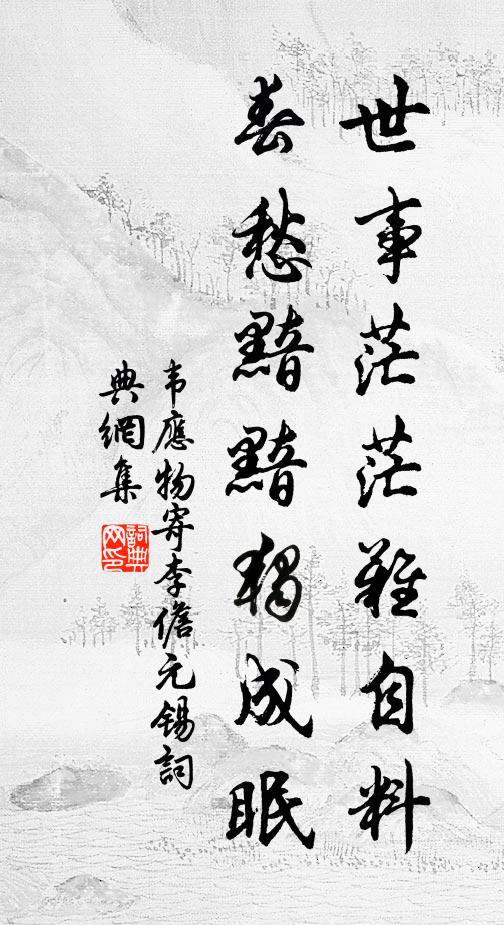 世事茫茫難自料
春愁黯黯獨成眠
韦應物寄李儋元锡詞
典網集
詞典
网印